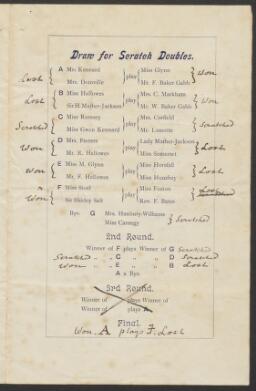 Draw for Scratch Doubles.
Lost A Mr. Kennard play Miss Glynn Won
Mrs. Denville Mr. F. Baker Gabb
Lost B Miss Hollowes play Mrs. C. Markham Won
Sir H Mather-Jackson Mr. W. Baker Gabb
Scratched C Miss Ramsey play Mrs. Corfield Scratched
Miss Gwen Kennard Mr. Lunette
Won D Mrs. Farmer play Lady Mather-Jackson Lost
Mr. R. Hollowes Miss Somerset
Won E Miss M. Glynn play Miss Horsfall Lost
Mr. F. Hollowes Miss Humfrey
Won F Miss Steel play Miss Foxton Lost
Sir Shirley Salt Rev. F. Bates
Bye. G Mrs. Humfrey-Williams Scratched
Miss Carnegy
2nd Round.
Winner of F plays Winner of G Scratched
Scratched „ C „ D Scratched
Won „ E „ B Lost
A a Bye
3rd Round.
Winner of plays Winner of
Winner of plays A
Final.
Won. A plays F. Lost